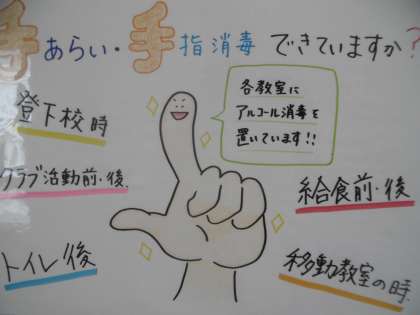 手あらい・手指消毒できていますか?
各教室に
アルコール消毒を
置いています!!
登下校時
クラブ活動前・後
トイレ後
給食前・後
移動教室の時